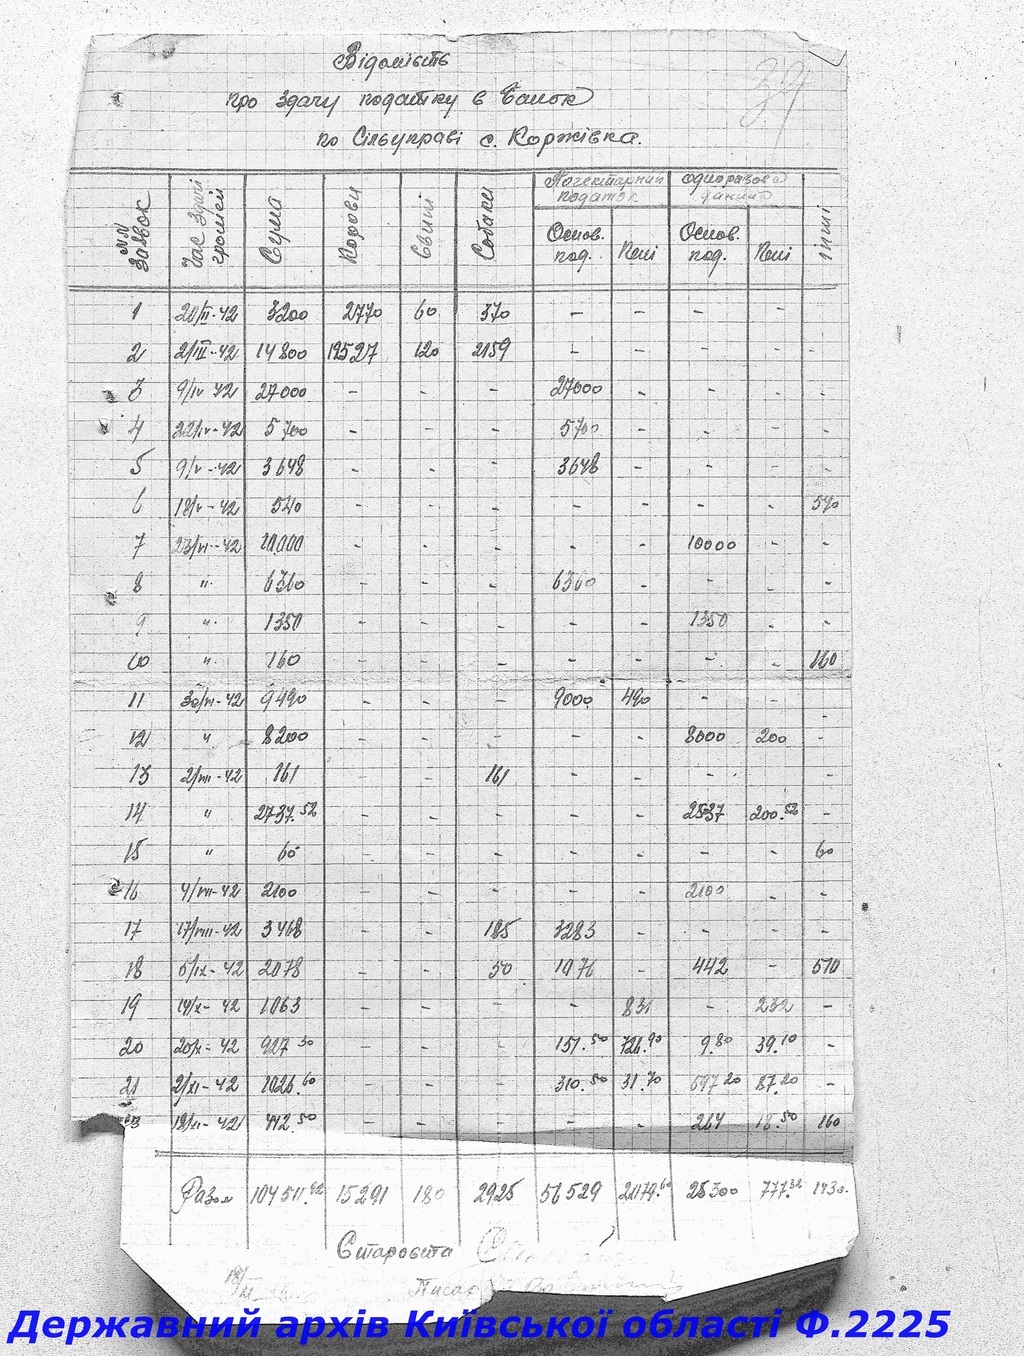 Відомість
про здачу податку в банок
по Сільуправі с. Коржівка.
№№ Заявок | Час здачі грошей | Сума | Корови | Свині | Собаки | Погектарний податок: Основ. под. | Пені | одноразова данина: Основ. под. | Пені | Інші
1 | 20/II-42 | 3200 | 2770 | 60 | 370 | - | - | - | - | -
2 | 2/III-42 | 14800 | 12527 | 120 | 2159 | - | - | - | - | -
3 | 9/IV 42 | 27000 | - | - | - | 27000 | - | - | - | -
4 | 22/IV-42 | 5700 | - | - | - | 5700 | - | - | - | -
5 | 9/V-42 | 3648 | - | - | - | 3648 | - | - | - | -
6 | 18/V-42 | 540 | - | - | - | - | - | - | - | 540
7 | 23/VI-42 | 10.000 | - | - | - | - | - | 10000 | - | -
8 | " | 6360 | - | - | - | 6360 | - | - | - | -
9 | " | 1350 | - | - | - | - | - | 1350 | - | -
10 | " | 160 | - | - | - | - | - | - | - | 160
11 | 30/VI-42 | 9490 | - | - | - | 9000 | 490 | - | - | -
12 | " | 8200 | - | - | - | - | - | 8000 | 200 | -
13 | 2/VII-42 | 161 | - | - | 161 | - | - | - | - | -
14 | " | 2737.52 | - | - | - | - | - | 2537 | 200.52 | -
15 | " | 60 | - | - | - | - | - | - | - | 60
16 | 4/VIII-42 | 2100 | - | - | - | - | - | 2100 | - | -
17 | 17/VIII-42 | 3468 | - | - | 185 | 3283 | - | - | - | -
18 | 5/IX-42 | 2078 | - | - | 50 | 1076 | - | 442 | - | 510
19 | 14/X-42 | 1063 | - | - | - | - | 831 | - | 232 | -
20 | 20/X-42 | 927.30 | - | - | - | 151.50 | 726.90 | 9.80 | 39.10 | -
21 | 2/XI-42 | 1026.60 | - | - | - | 310.50 | 31.70 | 597.20 | 87.20 | -
18/XI-42 | 442.50 | - | - | - | - | - | 264 | 18.50 | 160
Разом | 104511.92 | 15291 | 180 | 2925 | 56529 | 2079.60 | 25300 | 777.32 | 1430.
Староста
18/XI
Писар
Державний архів Київської області Ф.2225